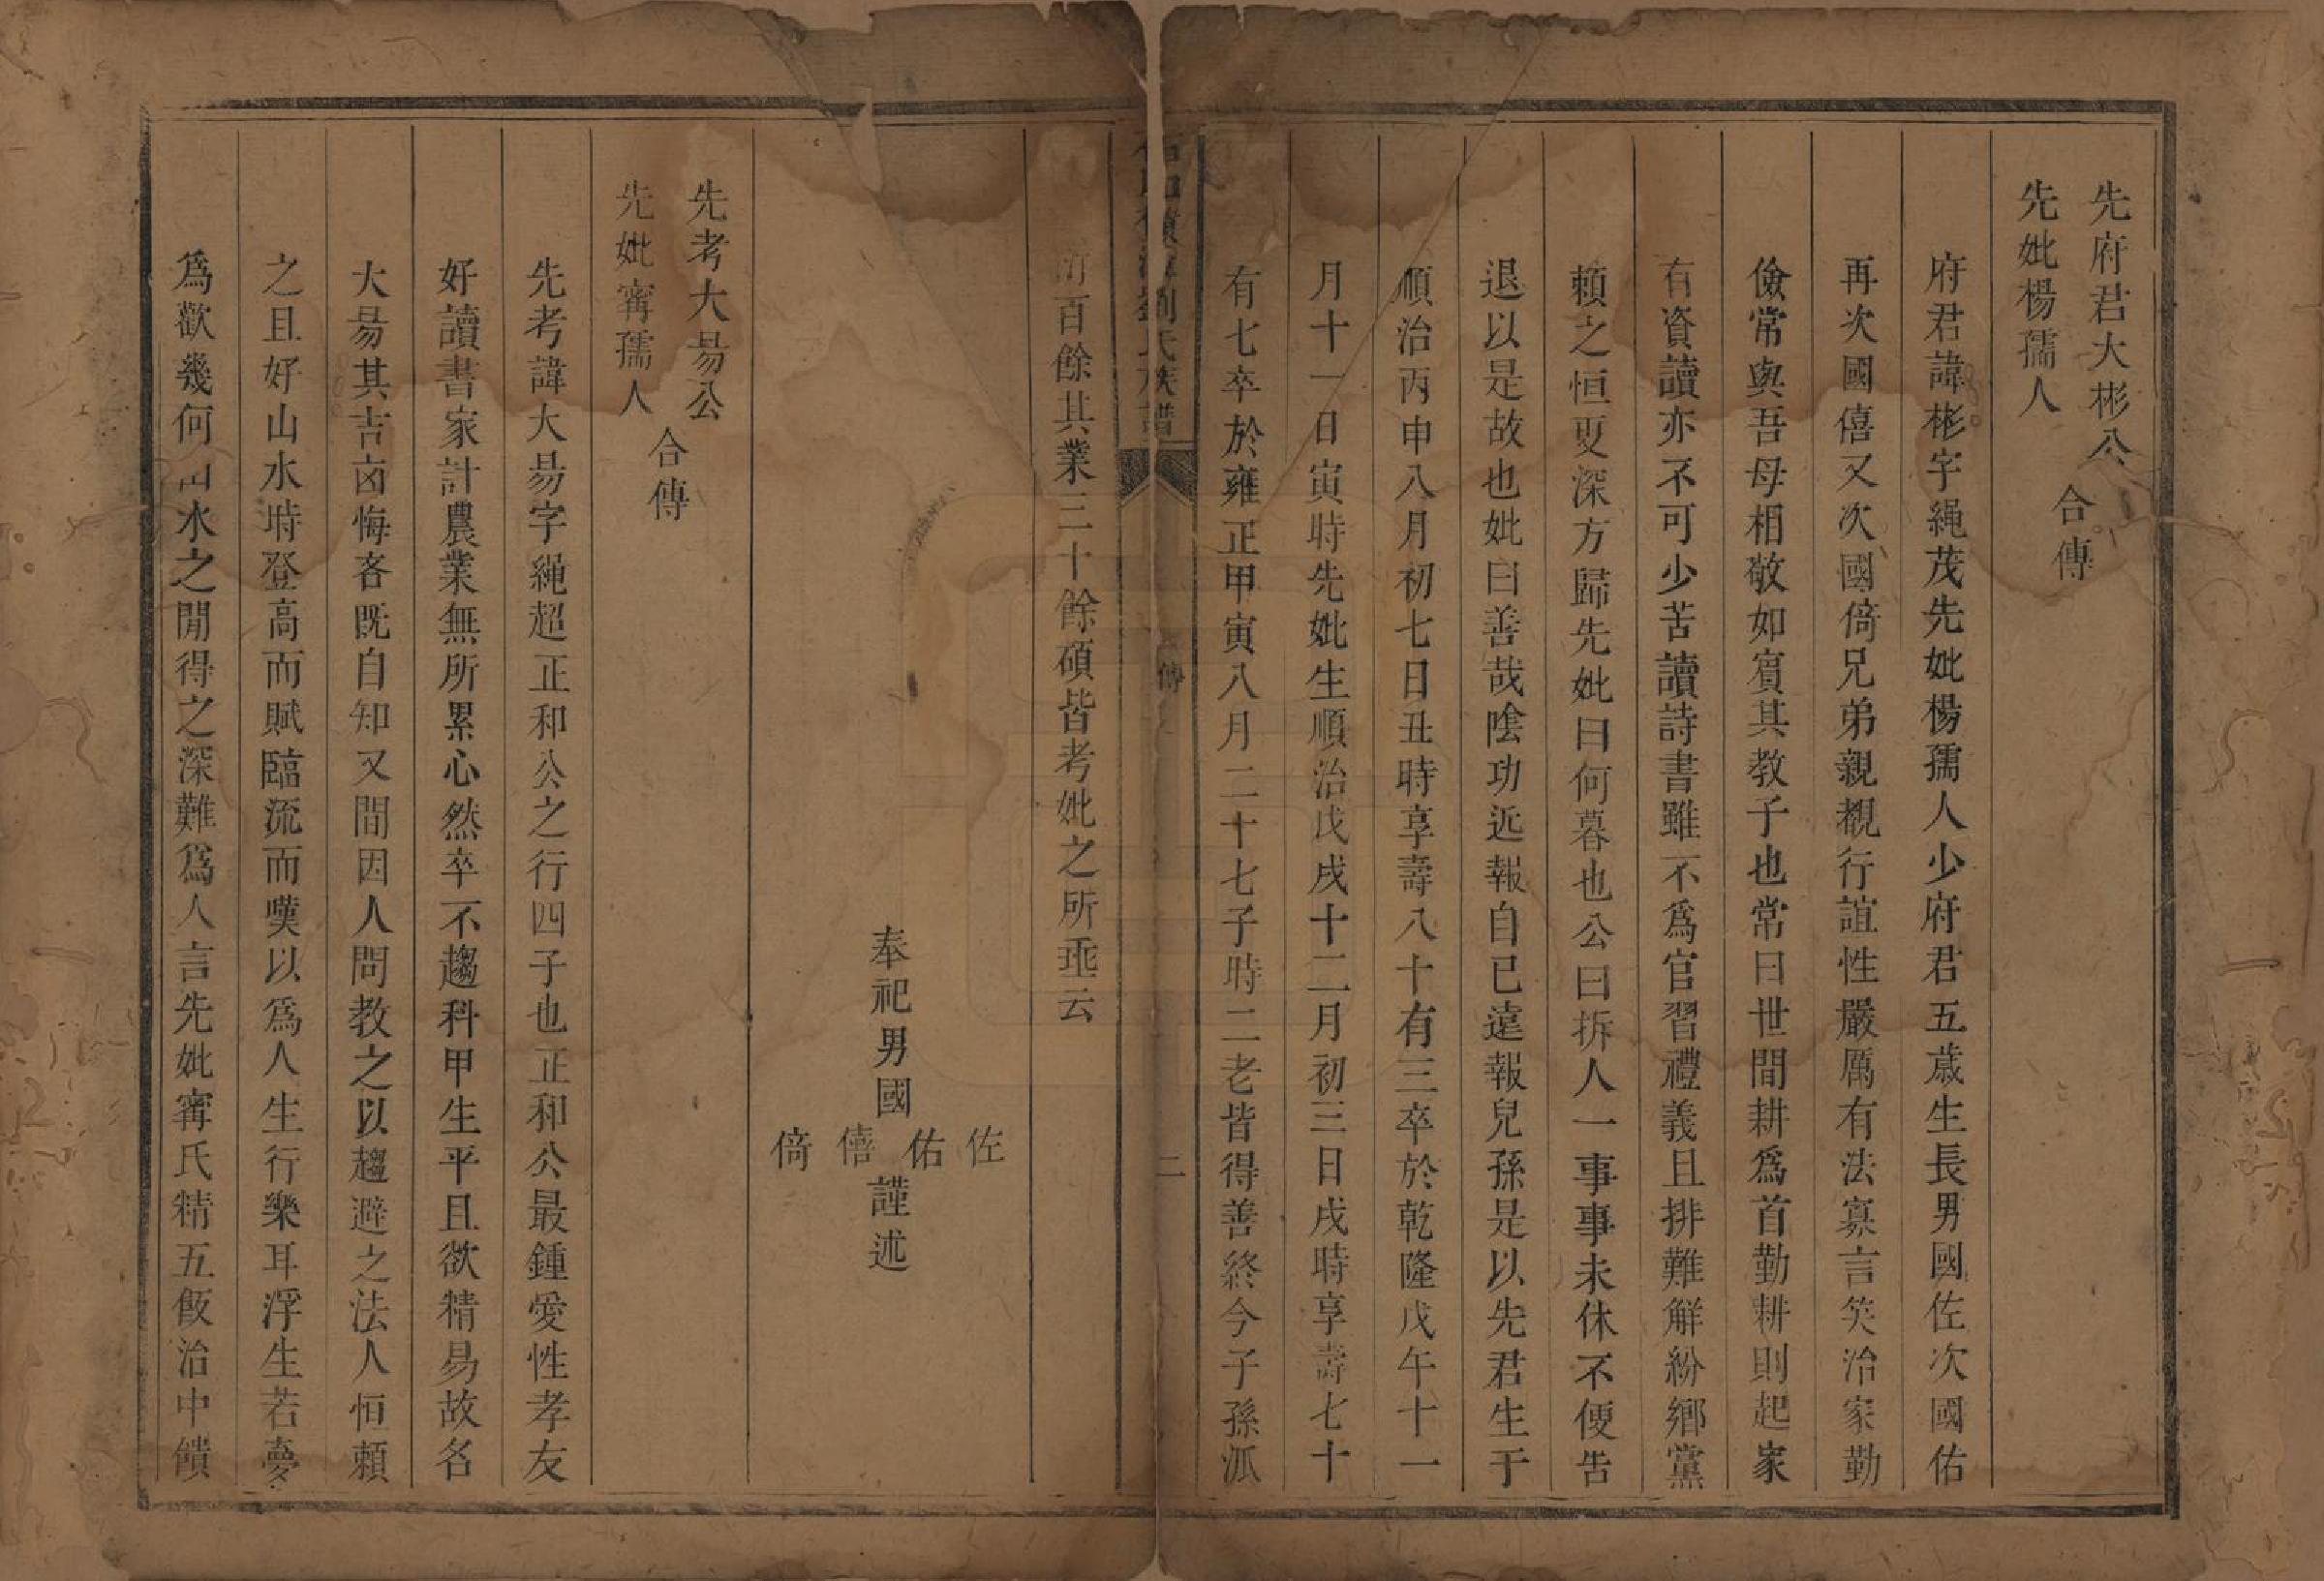 先府君大彬公
先妣楊孺人
合傳
府君諱彬字繩茂先妣楊孺人少府君五歲生長男國佐次國佑
再次國僖又次國倚兄弟親覩行誼性嚴厲有法寡言笑治家勤
儉常與吾母相敬如賓其教子也常曰世間耕爲首勤耕則起家
有資讀亦不可少苦讀詩書雖不爲官習禮義且排難解紛鄉黨
賴之恒更深方歸先妣曰何暮也公曰拆人一事事未休不便告
退以是故也妣曰善哉陰功近報自已遠報兒孫是以先君生于
順治丙申八月初七日丑時享壽八十有三卒於乾隆戊午十一
月十一日寅時先妣生順治戊戌十二月初三日戌時享壽七十
有七卒於雍正甲寅八月二十七子時二老皆得善終今子孫派
劉氏族譜
傳
二
百餘其業三十餘碩皆考妣之所垂云
奉祀男國
佐
佑
僖
倚
謹述
先考大昜公
先妣甯孺人
合傳
先考諱大昜字繩超正和公之行四子也正和公最鍾愛性孝友
好讀書家計農業無所累心然卒不趨科甲生平且欲精易故名
大昜其吉凶悔吝既自知又間因人問教之以趨避之法人恒賴
之且好山水時登高而賦臨流而嘆以爲人生行樂耳浮生若夢
爲歡幾何山水之間得之深難爲人言先妣甯氏精五飯治中饋